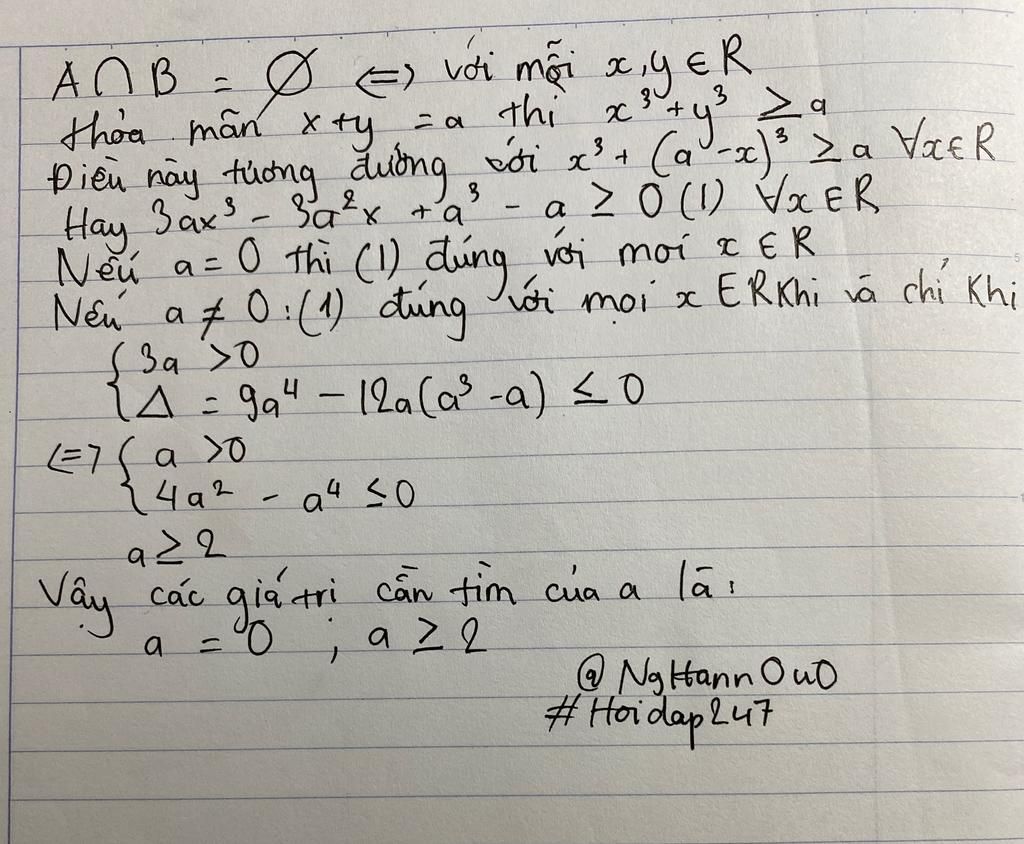 A ∩ B = Ø <=> với mỗi x,y ∈ R
thỏa mãn x+y = a thì x³+y³ ≥ a
Điều này tương đương với x³ + (a-x)³ ≥ a ∀x∈R
Hay 3ax³ - 3a²x + a³ - a ≥ 0 (1) ∀x∈R
Nếu a = 0 thì (1) đúng với mọi x ∈ R
Nếu a ≠ 0 : (1) đúng với mọi x ∈ R Khi và chỉ Khi
{ 3a > 0
{ Δ = 9a⁴ - 12a(a³ - a) ≤ 0
<=> { a > 0
{ 4a² - a⁴ ≤ 0
a ≥ 2
Vậy các giá trị cần tìm của a là :
a = 0 ; a ≥ 2
@ NgHann0u0
# Hoidap247